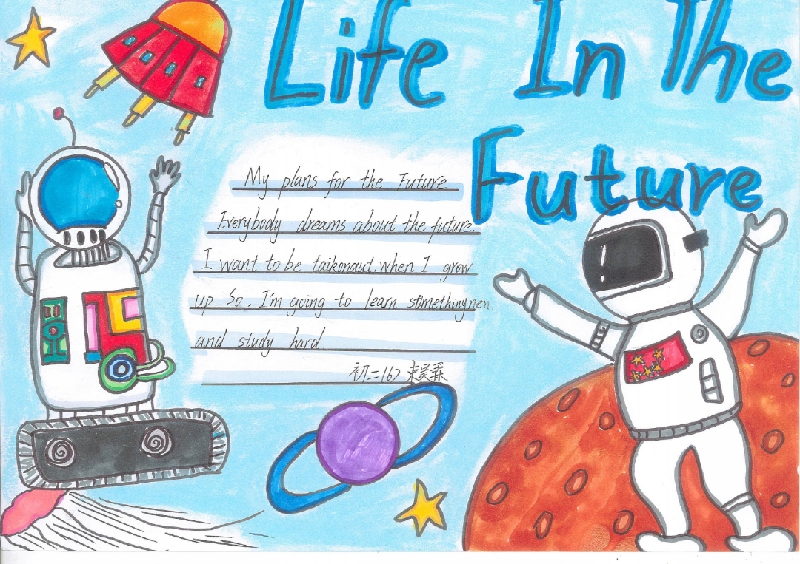 Life In The
Future
My plans for the Future
Everybody dreams about the future
I want to be taikonaut when I grow
up So, I'm going to learn
and study hard
初二(6)